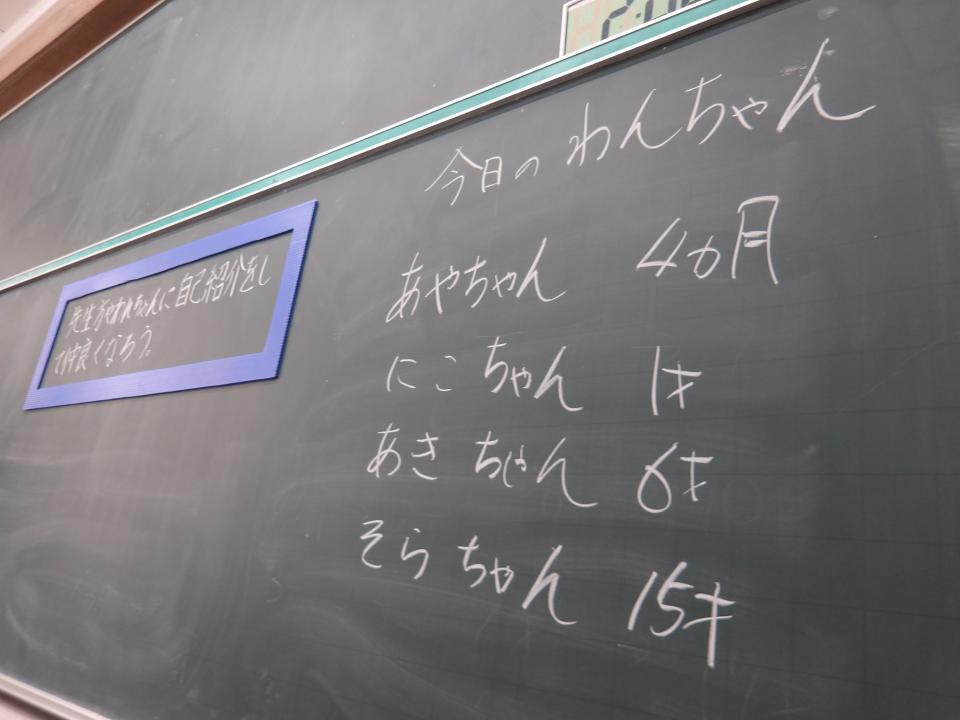 今日のわんちゃん
あやちゃん 4カ月
にこちゃん 1才
あきちゃん 6才
そらちゃん 15才
先生方やわんちゃんに自己紹介をし
て仲良くなろう。